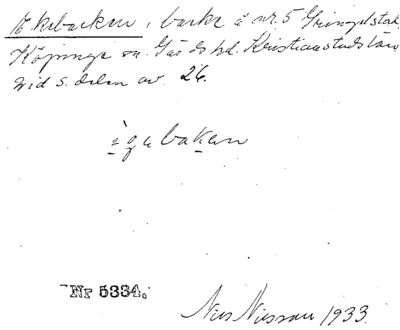 Ekebacken, backe å nr. 5 Gringelstad,
Köpinge sn. Gärds hd. Kristianstads län
Vid s. delen av 26.
ègabakan
Nr 5334.
Nils Nilsson 1933.